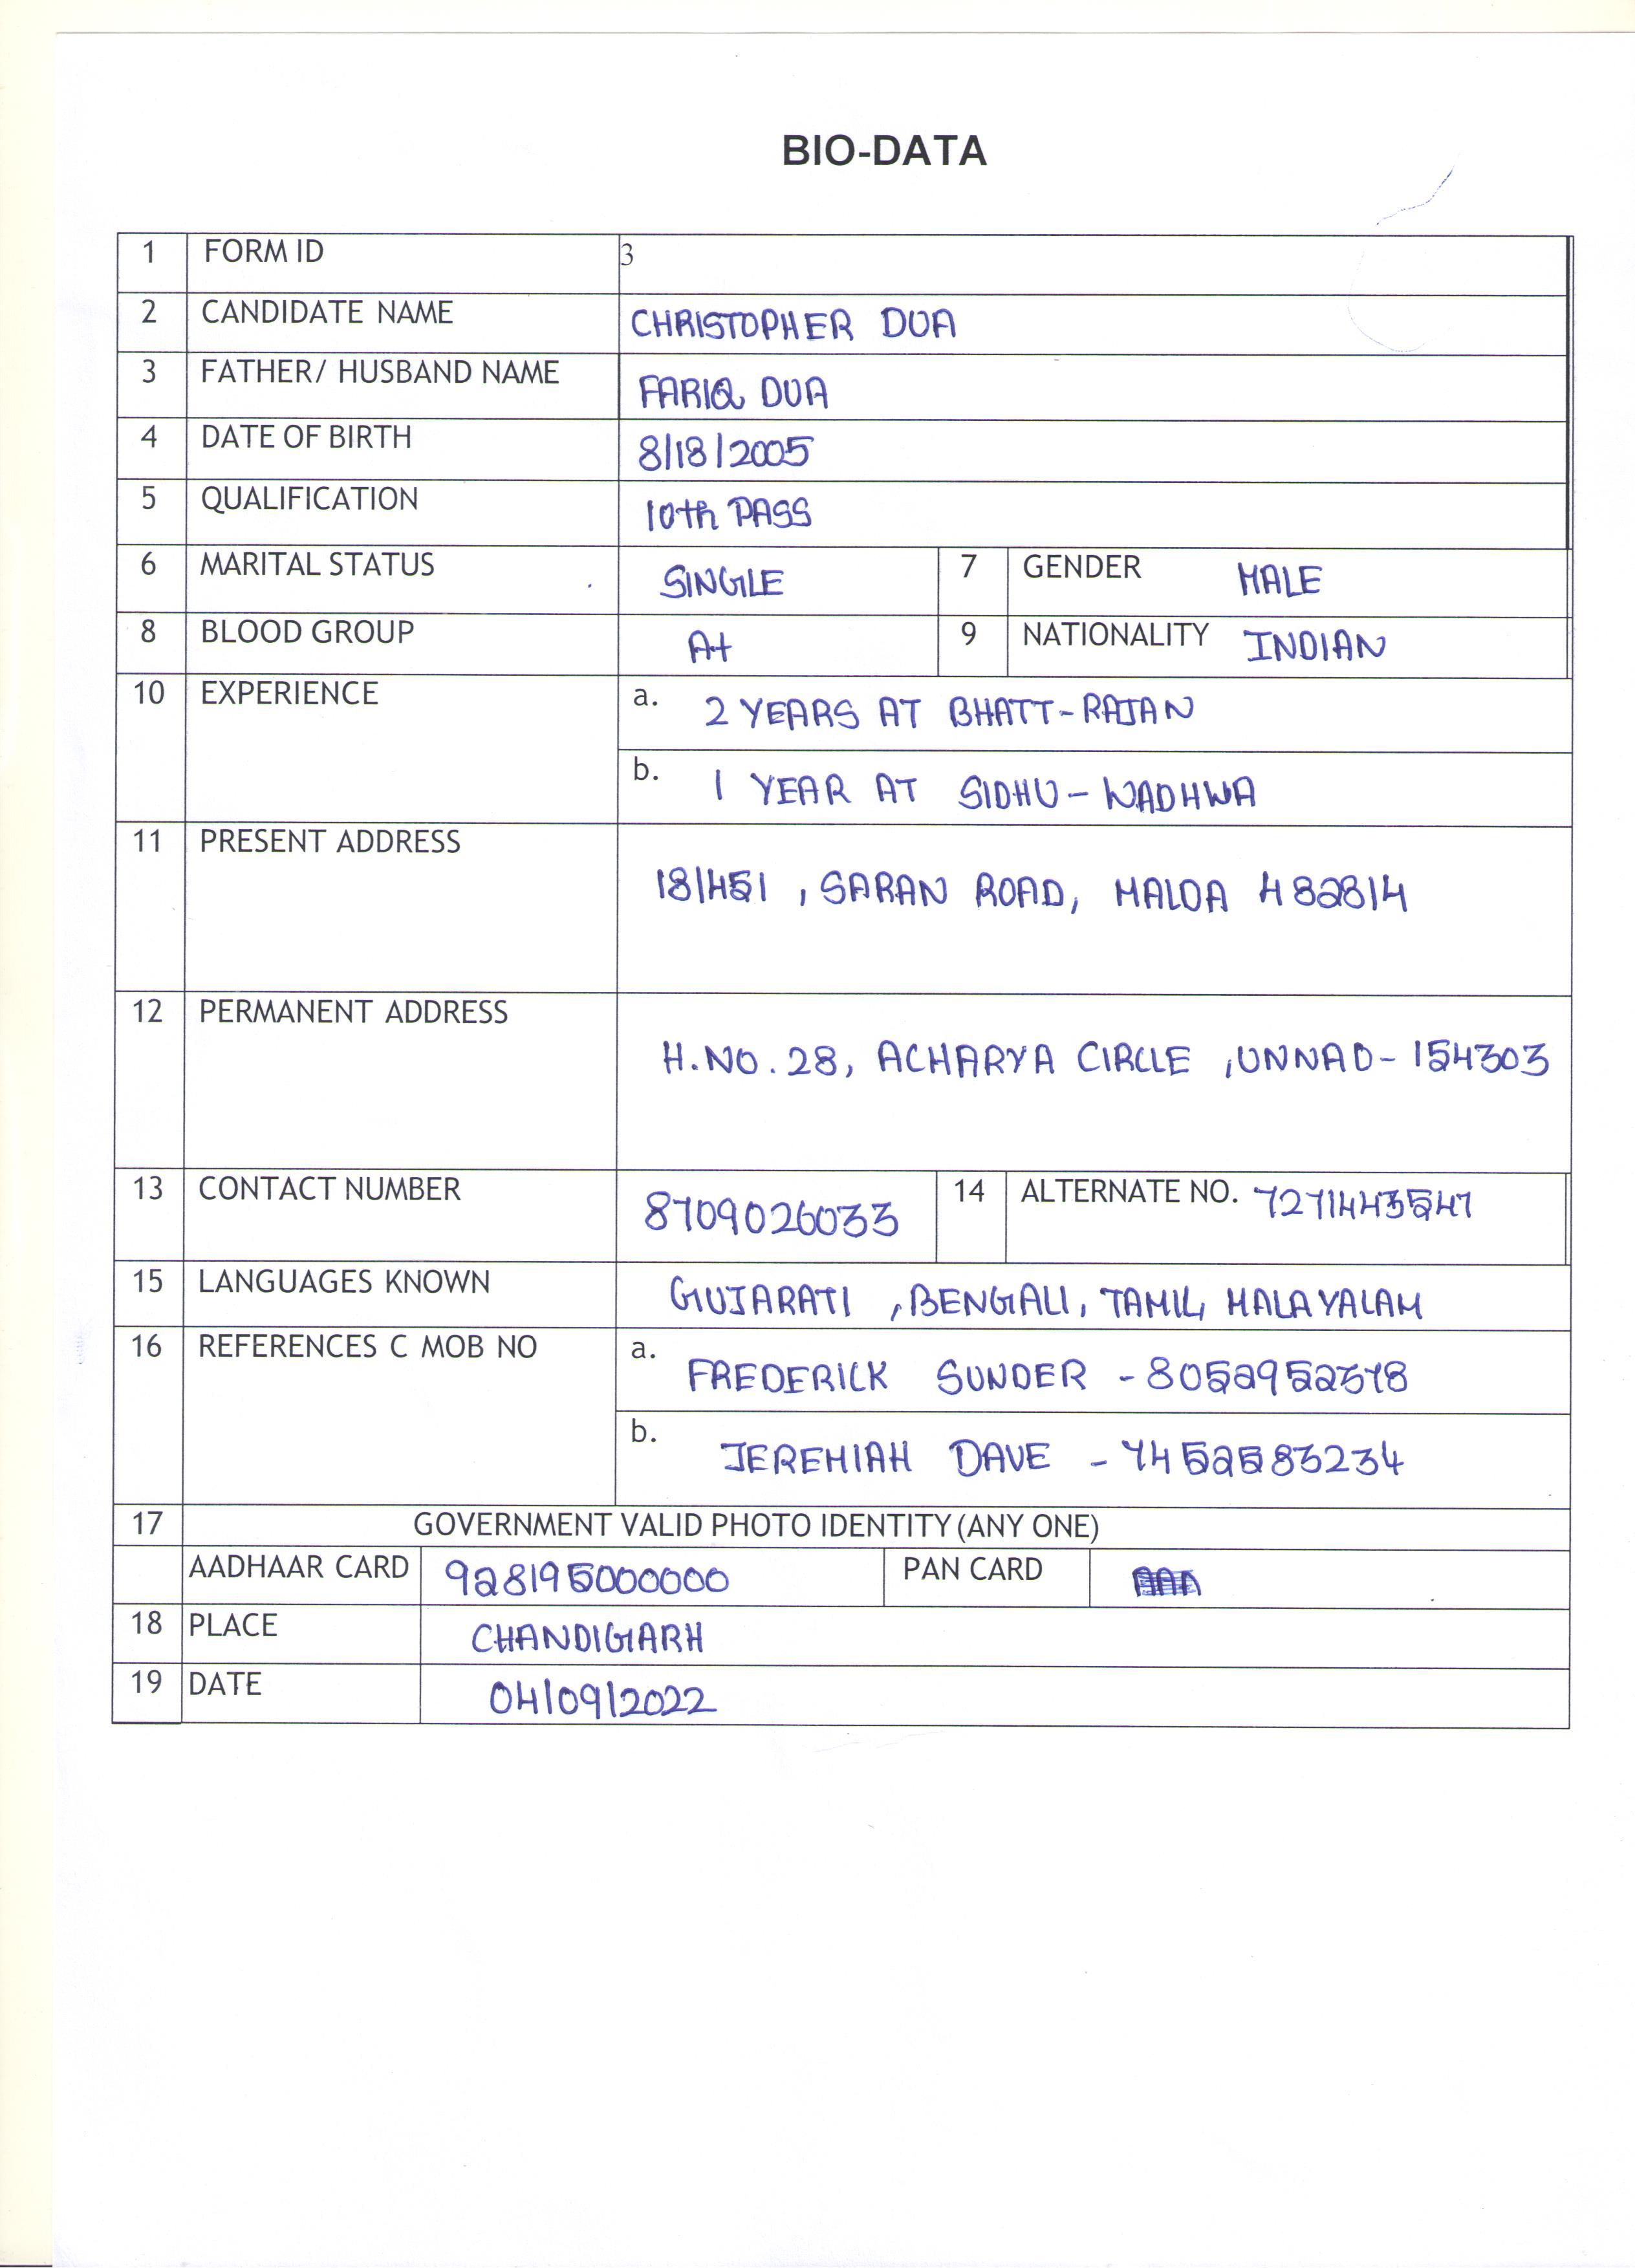 BIO-DATA
1 FORM ID 3
2 CANDIDATE NAME CHRISTOPHER DUA
3 FATHER/ HUSBAND NAME FARIQ DUA
4 DATE OF BIRTH 8/18/2005
5 QUALIFICATION 10th PASS
6 MARITAL STATUS SINGLE 7 GENDER MALE
8 BLOOD GROUP A+ 9 NATIONALITY INDIAN
10 EXPERIENCE a. 2 YEARS AT BHATT-RAJAN
b. 1 YEAR AT SIDHU-WADHWA
11 PRESENT ADDRESS 18/451 , SARAN ROAD, MALDA 482814
12 PERMANENT ADDRESS H.NO. 28, ACHARYA CIRCLE , UNNAO- 154303
13 CONTACT NUMBER 8709026033 14 ALTERNATE NO. 7271443547
15 LANGUAGES KNOWN GUJARATI , BENGALI, TAMIL, MALAYALAM
16 REFERENCES C MOB NO a. FREDERICK SUNDER - 8052952378
b. JEREMIAH DAVE - 7452583234
17 GOVERNMENT VALID PHOTO IDENTITY (ANY ONE)
AADHAAR CARD 928195000000 PAN CARD
18 PLACE CHANDIGARH
19 DATE 04/09/2022